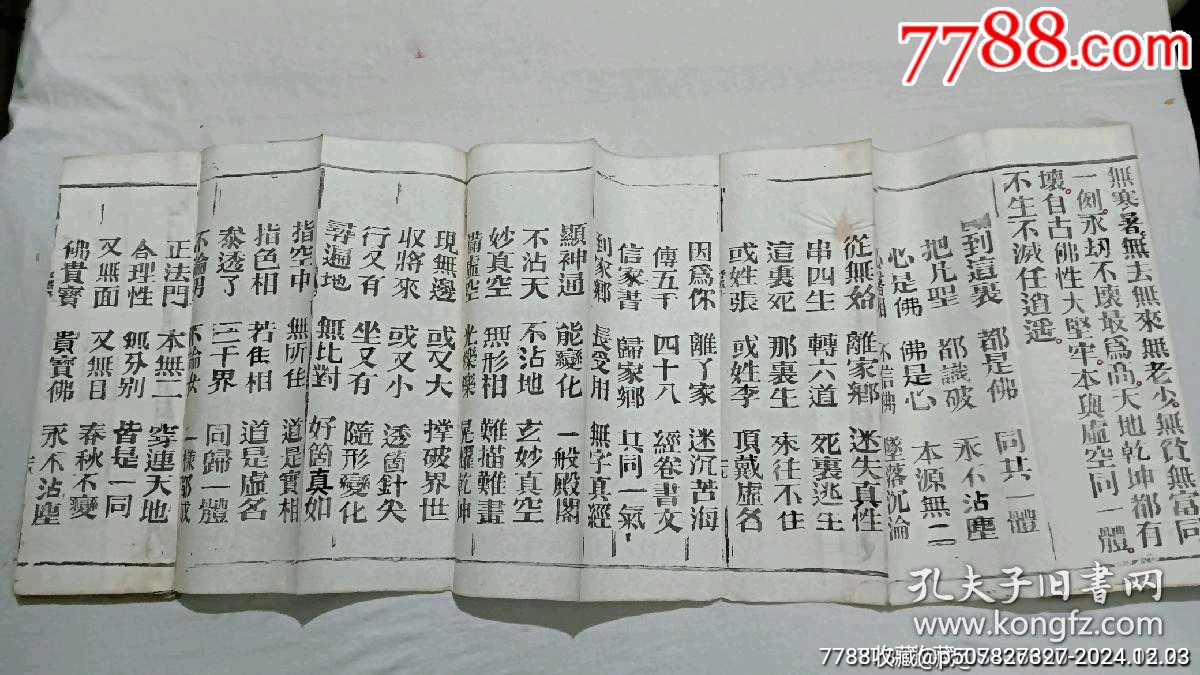 無寒暑。無去無來無老少。無貧無富同
一例。永刼不壞最爲高。天地乾坤都有
壞。自古佛性大堅牢。本與虛空同一體。
不生不滅任逍遥。
到這裏 都是佛 同共一體
把凡聖 都識破 永不沾塵
心是佛 佛是心 本源無二
不信佛 墜落沉淪
從無始 離家鄉 迷失真性
串四生 轉六道 死裏逃生
這裏死 那裏生 來往不住
或姓張 或姓李 頂戴虛名
因爲你 離了家 迷沉苦海
傳五千 四十八 經卷書文
信家書 歸家鄉 共同一氣
到家鄉 長受用 無字真經
顯神通 能變化 一般殿閣
不沾天 不沾地 玄妙真空
妙真空 無形相 難描難畫
滿虛空 光爍爍 晃耀乾坤
現無邊 或又大 撑破界世
收將來 或又小 透箇針尖
行又有 坐又有 隨形變化
尋遍地 無比對 好箇真如
指空中 無所住 道是實相
指色相 若住相 道是虛名
叅透了 三千界 同歸一體
不論男 不論女 一樣都成
正法門 本無二 穿連天地
合理性 無分别 皆是一同
又無面 又無目 春秋不變
佛貴寶 貴寶佛 永不沾塵
7788.com
孔夫子旧书网
www.kongfz.com
7788收藏@p507827327-2024.12.03